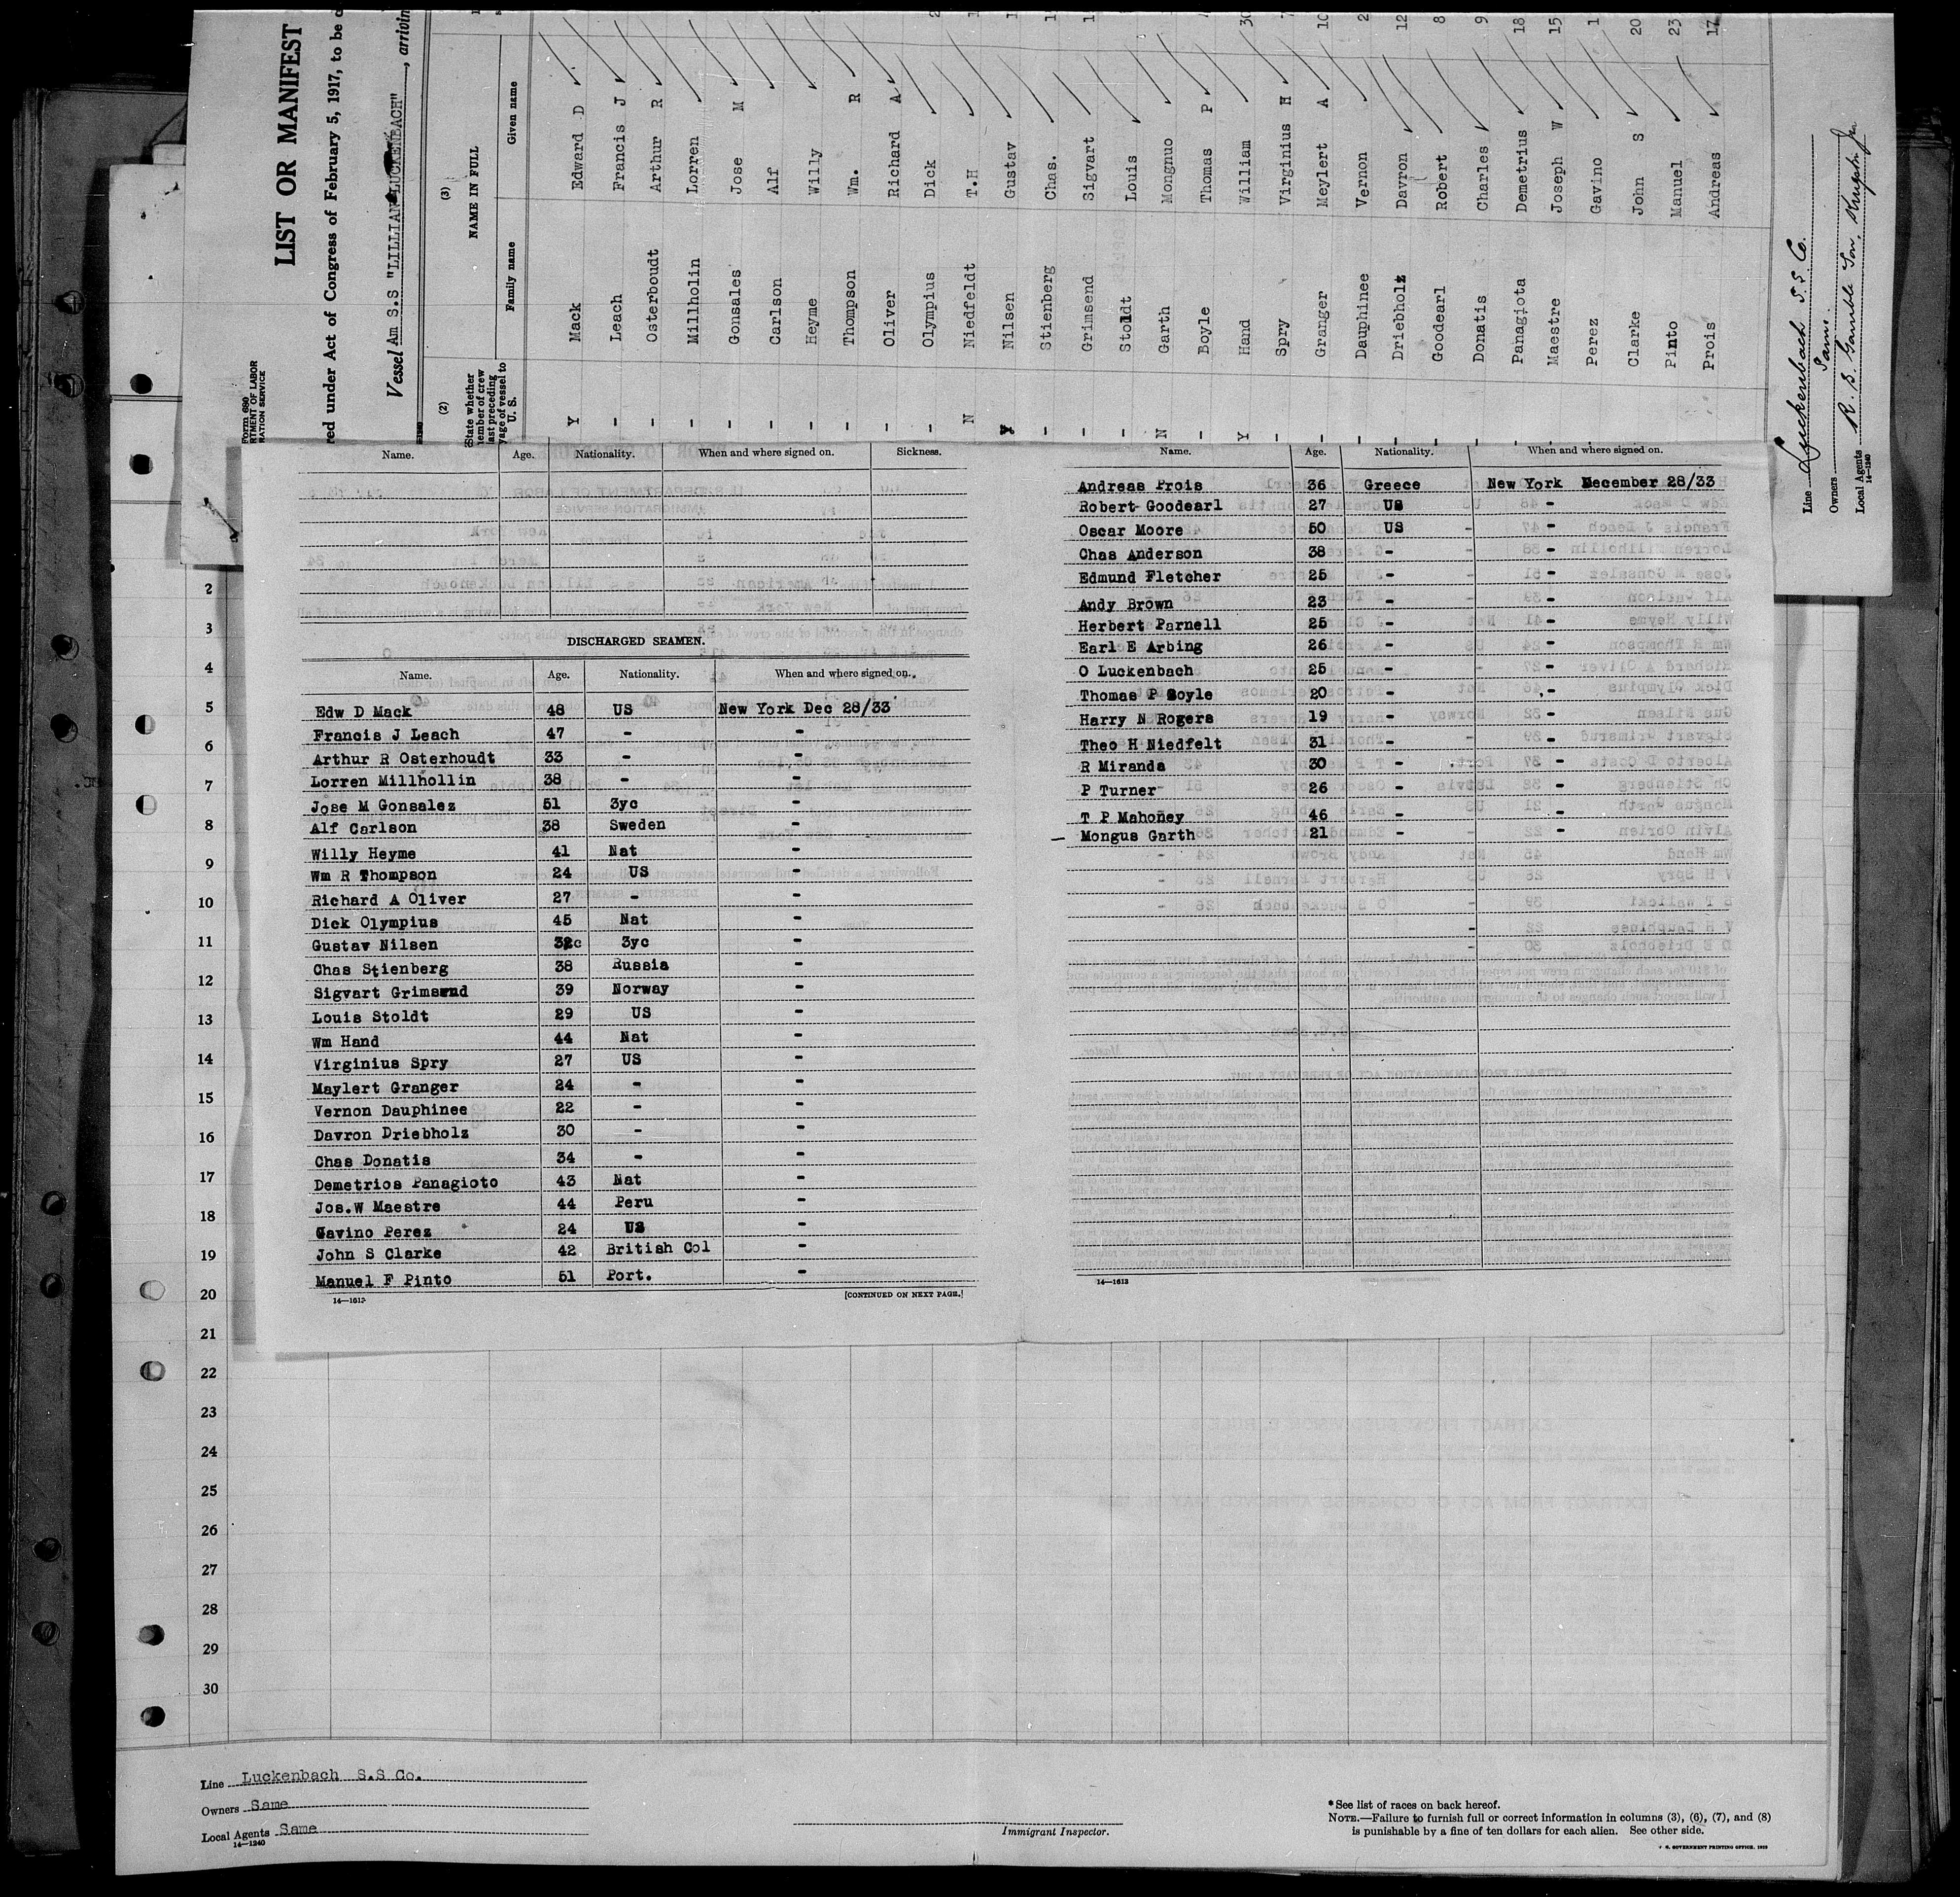 LIST OR MANIFEST
red under Act of Congress of February 5, 1917, to be
Vessel Am S.S "LILLIAN LUCKENBACH", arrivin
Form 680
RTMENT OF LABOR
RATION SERVICE
(2) (3)
State whether
member of crew
last preceding
voyage of vessel to
U. S.
NAME IN FULL
Family name Given name
Y Mack Edward D
- Leach Francis J
- Osterboudt Arthur R
- Millholin Lorren
- Gonsales Jose M
- Carlson Alf
- Heyme Willy
- Thompson Wm. R
- Oliver Richard A
- Olympius Dick
N Niedfeldt T.H
Y Nilsen Gustav
- Stienberg Chas.
- Grimsend Sigvart
- Stoldt Louis
N Garth Mongnuo
- Boyle Thomas P
Y Hand William
- Spry Virginius H
- Granger Meylert A
- Dauphinee Vernon
- Driebholz Davron
- Goodearl Robert
- Donatis Charles
- Panagiota Demetrius
- Maestre Joseph W
- Perez Gavino
- Clarke John S
- Pinto Manuel
- Prois Andreas
Line Luckenbach S.S. Co.
Owners Same
Local Agents R. B. Gamble
14—1240
Name. Age. Nationality. When and where signed on. Sickness.
DISCHARGED SEAMEN.
Name. Age. Nationality. When and where signed on.
Edw D Mack 48 US New York Dec 28/33
Francis J Leach 47 - -
Arthur R Osterhoudt 33 - -
Lorren Millhollin 38 - -
Jose M Gonsalez 51 3yc -
Alf Carlson 38 Sweden -
Willy Heyme 41 Nat -
Wm R Thompson 24 US -
Richard A Oliver 27 - -
Dick Olympius 45 Nat -
Gustav Nilsen 32c 3yc -
Chas Stienberg 38 Russia -
Sigvart Grimsend 39 Norway -
Louis Stoldt 29 US -
Wm Hand 44 Nat -
Virginius Spry 27 US -
Maylert Granger 24 - -
Vernon Dauphinee 22 - -
Davron Driebholz 30 - -
Chas Donatis 34 - -
Demetrios Panagioto 43 Nat -
Jos.W Maestre 44 Peru -
Gavino Perez 24 US -
John S Clarke 42 British Col -
Manuel F Pinto 51 Port. -
14—1613 [CONTINUED ON NEXT PAGE.]
Name. Age. Nationality. When and where signed on.
Andreas Prois 36 Greece New York December 28/33
Robert Goodearl 27 US -
Oscar Moore 50 US -
Chas Anderson 38 - -
Edmund Fletcher 25 - -
Andy Brown 23 - -
Herbert Parnell 25 - -
Earl E Arbing 26 - -
O Luckenbach 25 - -
Thomas P Boyle 20 - -
Harry N Rogers 19 - -
Theo H Niedfelt 31 - -
R Miranda 30 - -
P Turner 26 - -
T P Mahoney 46 - -
Mongus Garth 21 - -
14—1613
2
3
4
5
6
7
8
9
10
11
12
13
14
15
16
17
18
19
20
21
22
23
24
25
26
27
28
29
30
Line Luckenbach S.S Co.
Owners Same
Local Agents Same
14—1240
Immigrant Inspector.
* See list of races on back hereof.
NOTE.—Failure to furnish full or correct information in columns (3), (6), (7), and (8)
is punishable by a fine of ten dollars for each alien. See other side.
U. S. GOVERNMENT PRINTING OFFICE: 1929